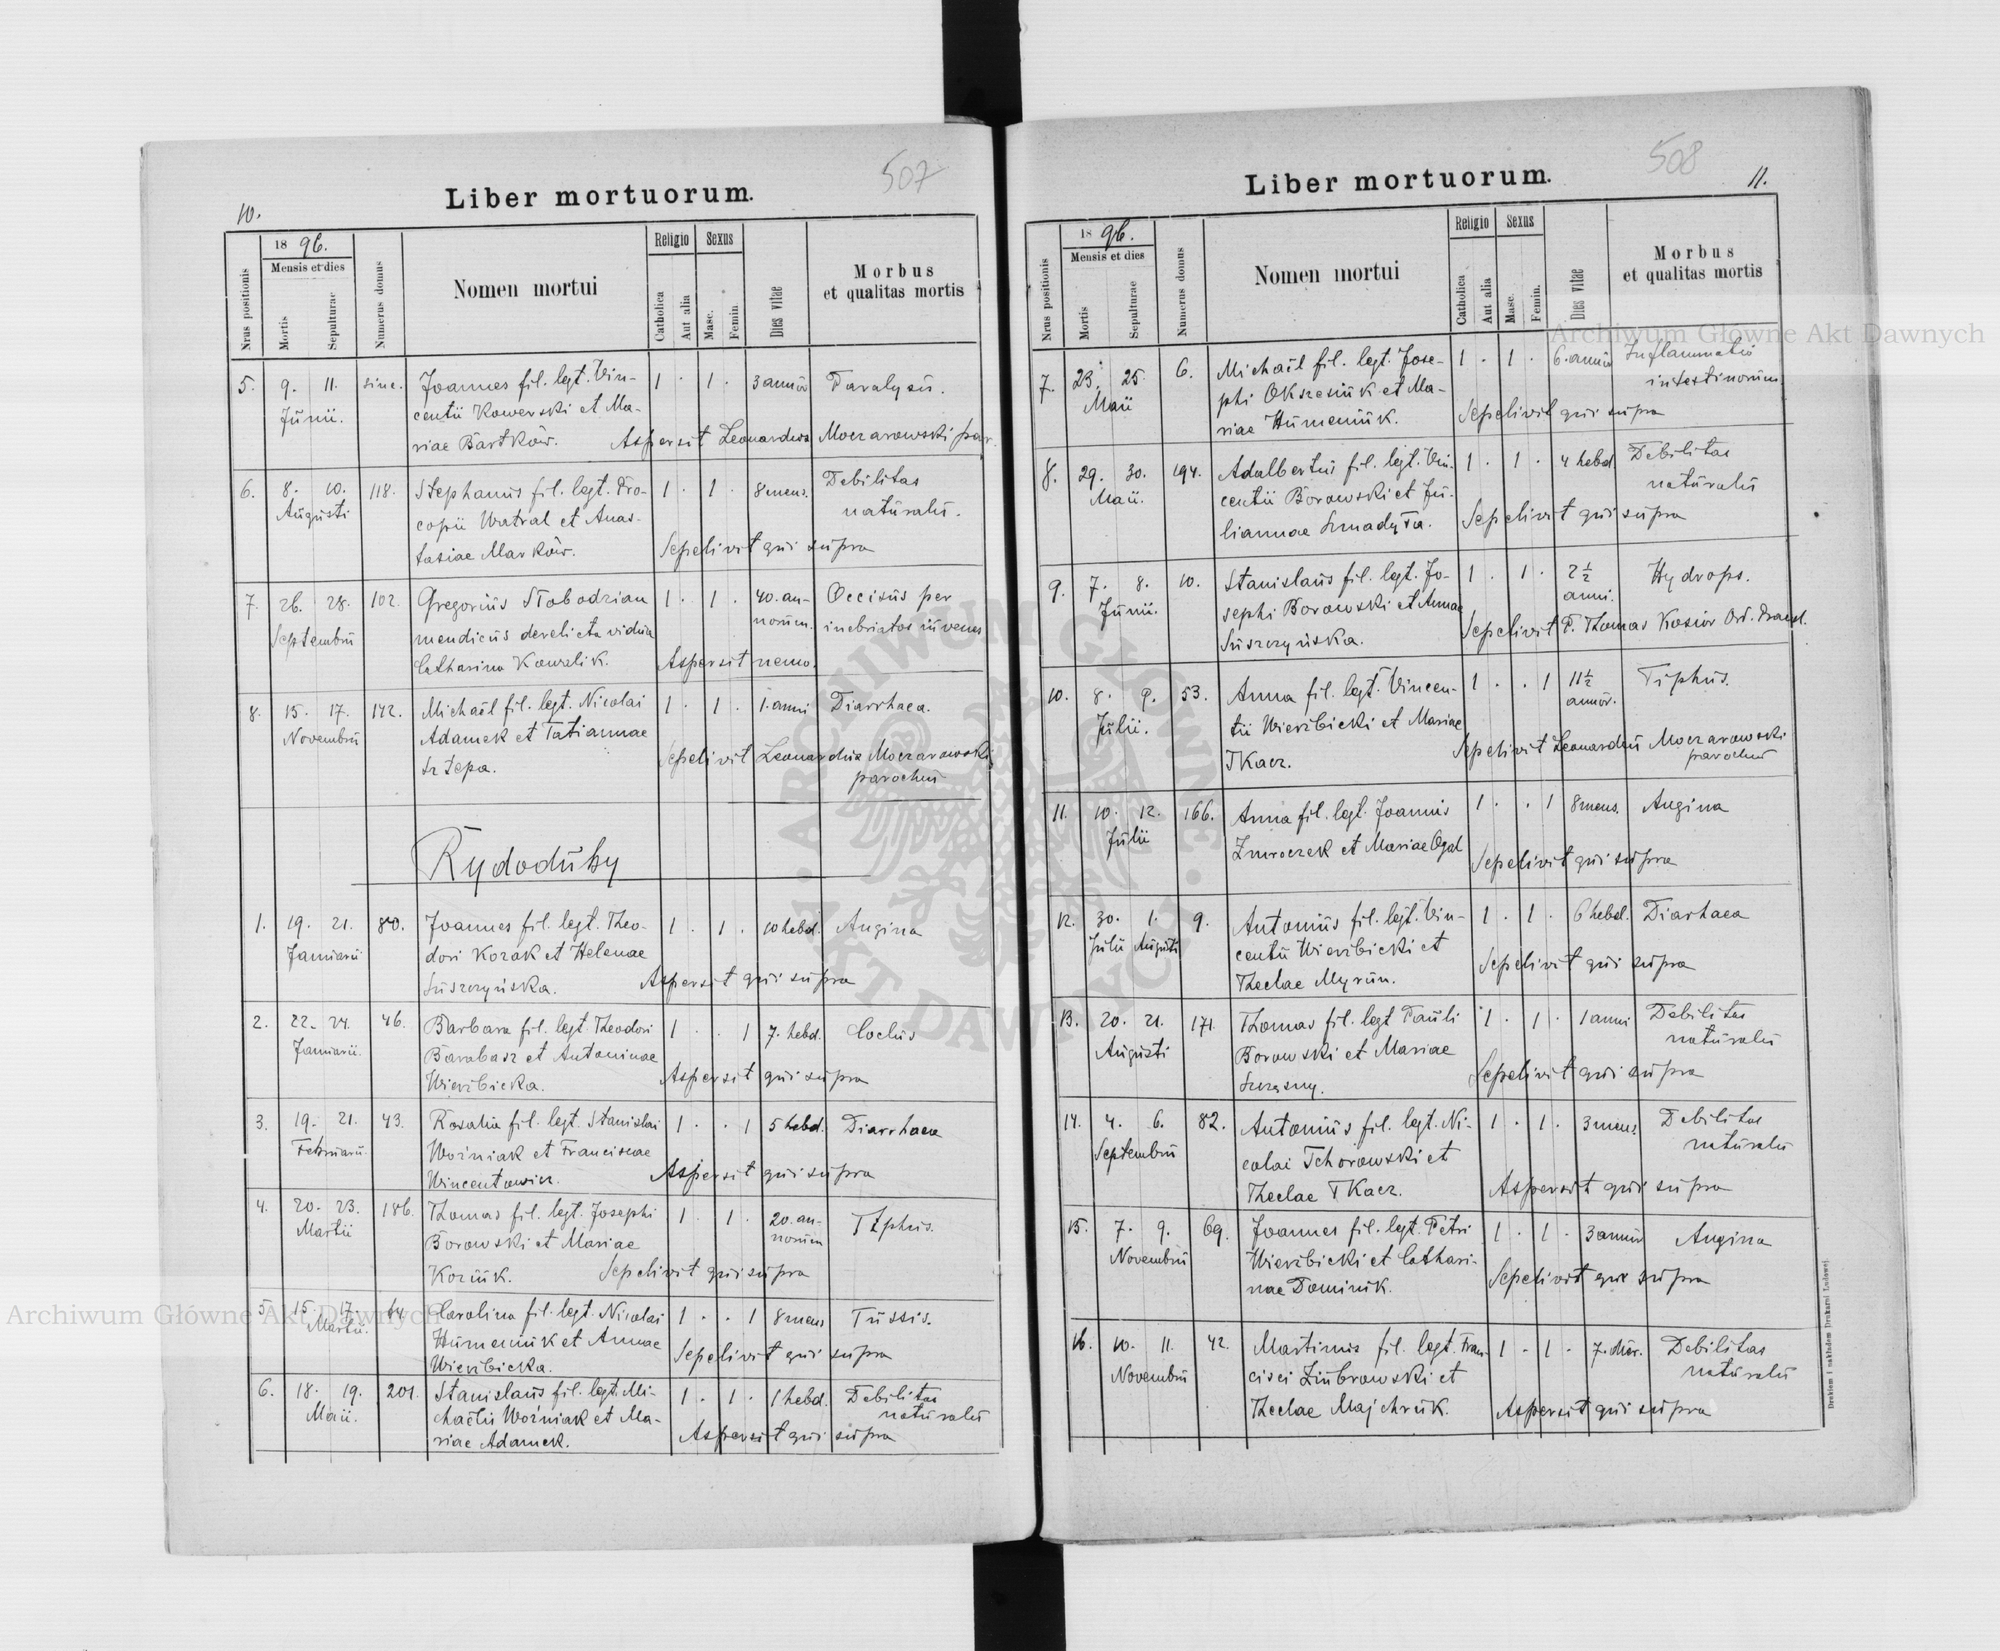 507
Liber mortuorum.
10.
Nrus positionis
18 96.
Mensis et dies
Mortis
Sepulturae
Numerus domus
Nomen mortui
Religio
Catholica
Aut alia
Sexus
Masc.
Femin.
Dies vitae
Morbus
et qualitas mortis
5. 9. 11. sine. Joannes fil. legt. Vin- 1 · 1 · 3 annor Paralysis.
Junii. centii Kowerski et Ma-
riae Bartków. Aspersit Leonardus Moczarowski par.
6. 8. 10. 118. Stephanus fil. legt. Pro- 1 · 1 · 8 mens. Debilitas
Augusti copii Watral et Anas- naturalis.
tasiae Marków. Sepelivit qui supra
7. 26. 28. 102. Gregorius Słobodzian 1 · 1 · 40. an- Occisus per
Septembris mendicus derelicta vidua norum. inebriatos iuvenes
Catharina Kowalik. Aspersit nemo.
8. 15. 17. 172. Michaël fil. legt. Nicolai 1 · 1 · 1. anni Diarrhaea.
Novembris Adamek et Tatiannae
Sepelivit Leonardus Moczarowski
parochus
Rydoduby
1. 19. 21. 80. Joannes fil. legt. Theo- 1 · 1 · 10 hebd. Angina
Januarii dori Kozak et Helenae
Suszczyńska. Aspersit qui supra
2. 22. 24. 46. Barbara fil. legt. Theodori 1 · · 1 7. hebd.
Januarii. Barabasz et Antoninae
Wierzbicka. Aspersit qui supra
3. 19. 21. 43. Rosalia fil. legt. Stanislai 1 · · 1 5 hebd. Diarrhaea
Februarii. Woźniak et Franciscae
Wincentowicz. Aspersit qui supra
4. 20. 23. 186. Thomas fil. legt. Josephi 1 · 1 · 20. an- Typhus.
Martii Borowski et Mariae norum
Koziük. Sepelivit qui supra
5. 15. 17. 64 Carolina fil. legt. Nicolai 1 · · 1 8 mens Tussis.
Martii. Humeniuk et Annae
Wierzbicka. Sepelivit qui supra
6. 18. 19. 201. Stanislaus fil. legt. Mi- 1 · 1 · 1 hebd. Debilitas
Maii. chaëlis Woźniak et Ma- naturalis
riae Adamek. Aspersit qui supra
508
Liber mortuorum.
11.
Nrus positionis
18 96.
Mensis et dies
Mortis
Sepulturae
Numerus domus
Nomen mortui
Religio
Catholica
Aut alia
Sexus
Masc.
Femin.
Dies vitae
Morbus
et qualitas mortis
7. 23. 25. 6. Michaël fil. legt. Jose- 1 · 1 · 6. annor Inflammatio
Maii phi Okszesiuk et Ma- intestinorum.
riae Humeniuk. Sepelivit qui supra
8. 29. 30. 194. Adalbertus fil. legt. Vin- 1 · 1 · 4 hebd. Debilitas
Maii. centii Borowski et Ju- naturalis
liannae Sepelivit qui supra
9. 7. 8. 10. Stanislaus fil. legt. Jo- 1 · 1 · 2½ Hydrops.
Junii. sephi Borowski et Annae anni.
Suszczyńska. Sepelivit P. Thomas Kosior Ord. Praed.
10. 8. 9. 53. Anna fil. legt. Vincen- 1 · · 1 11½ Tiphus.
Julii. tii Wierzbicki et Mariae annor.
Tkacz. Sepelivit Leonardus Moczarowski
parochus
11. 10. 12. 166. Anna fil. legt. Joannis 1 · · 1 8 mens. Angina
Julii Zmroczek et Mariae Ogal
Sepelivit qui supra
12. 30. 1. 9. Antonius fil. legt. Vin- 1 · 1 · 6 hebd. Diarhaea
Julii Augusti centii Wierzbicki et
Theclae Myrun. Sepelivit qui supra
13. 20. 21. 171. Thomas fil. legt Pauli 1 · 1 · 1 anni Debilitas
Augusti Borowski et Mariae naturalis
Szczęsny. Sepelivit qui supra
14. 4. 6. 82. Antonius fil. legt. Ni- 1 · 1 · 3 mens. Debilitas
Septembris colai Tchorowski et naturalis
Theclae Tkacz. Aspersit qui supra
15. 7. 9. 69. Joannes fil. legt. Petri 1 · 1 · 3 annor Angina
Novembris Wierzbicki et Cathari-
nae Dominik. Sepelivit qui supra
16. 10. 11. 42. Martinus fil. legt. Fran- 1 · 1 · 7. Debilitas
Novembris cisci Zubrowski et naturalis
Theclae Majchruk. Aspersit qui supra
Drukiem i nakładem Drukarni Ludowej
Archiwum Główne Akt Dawnych
Archiwum Główne Akt Dawnych
ARCHIWUM GŁÓWNE
AKT DAWNYCH